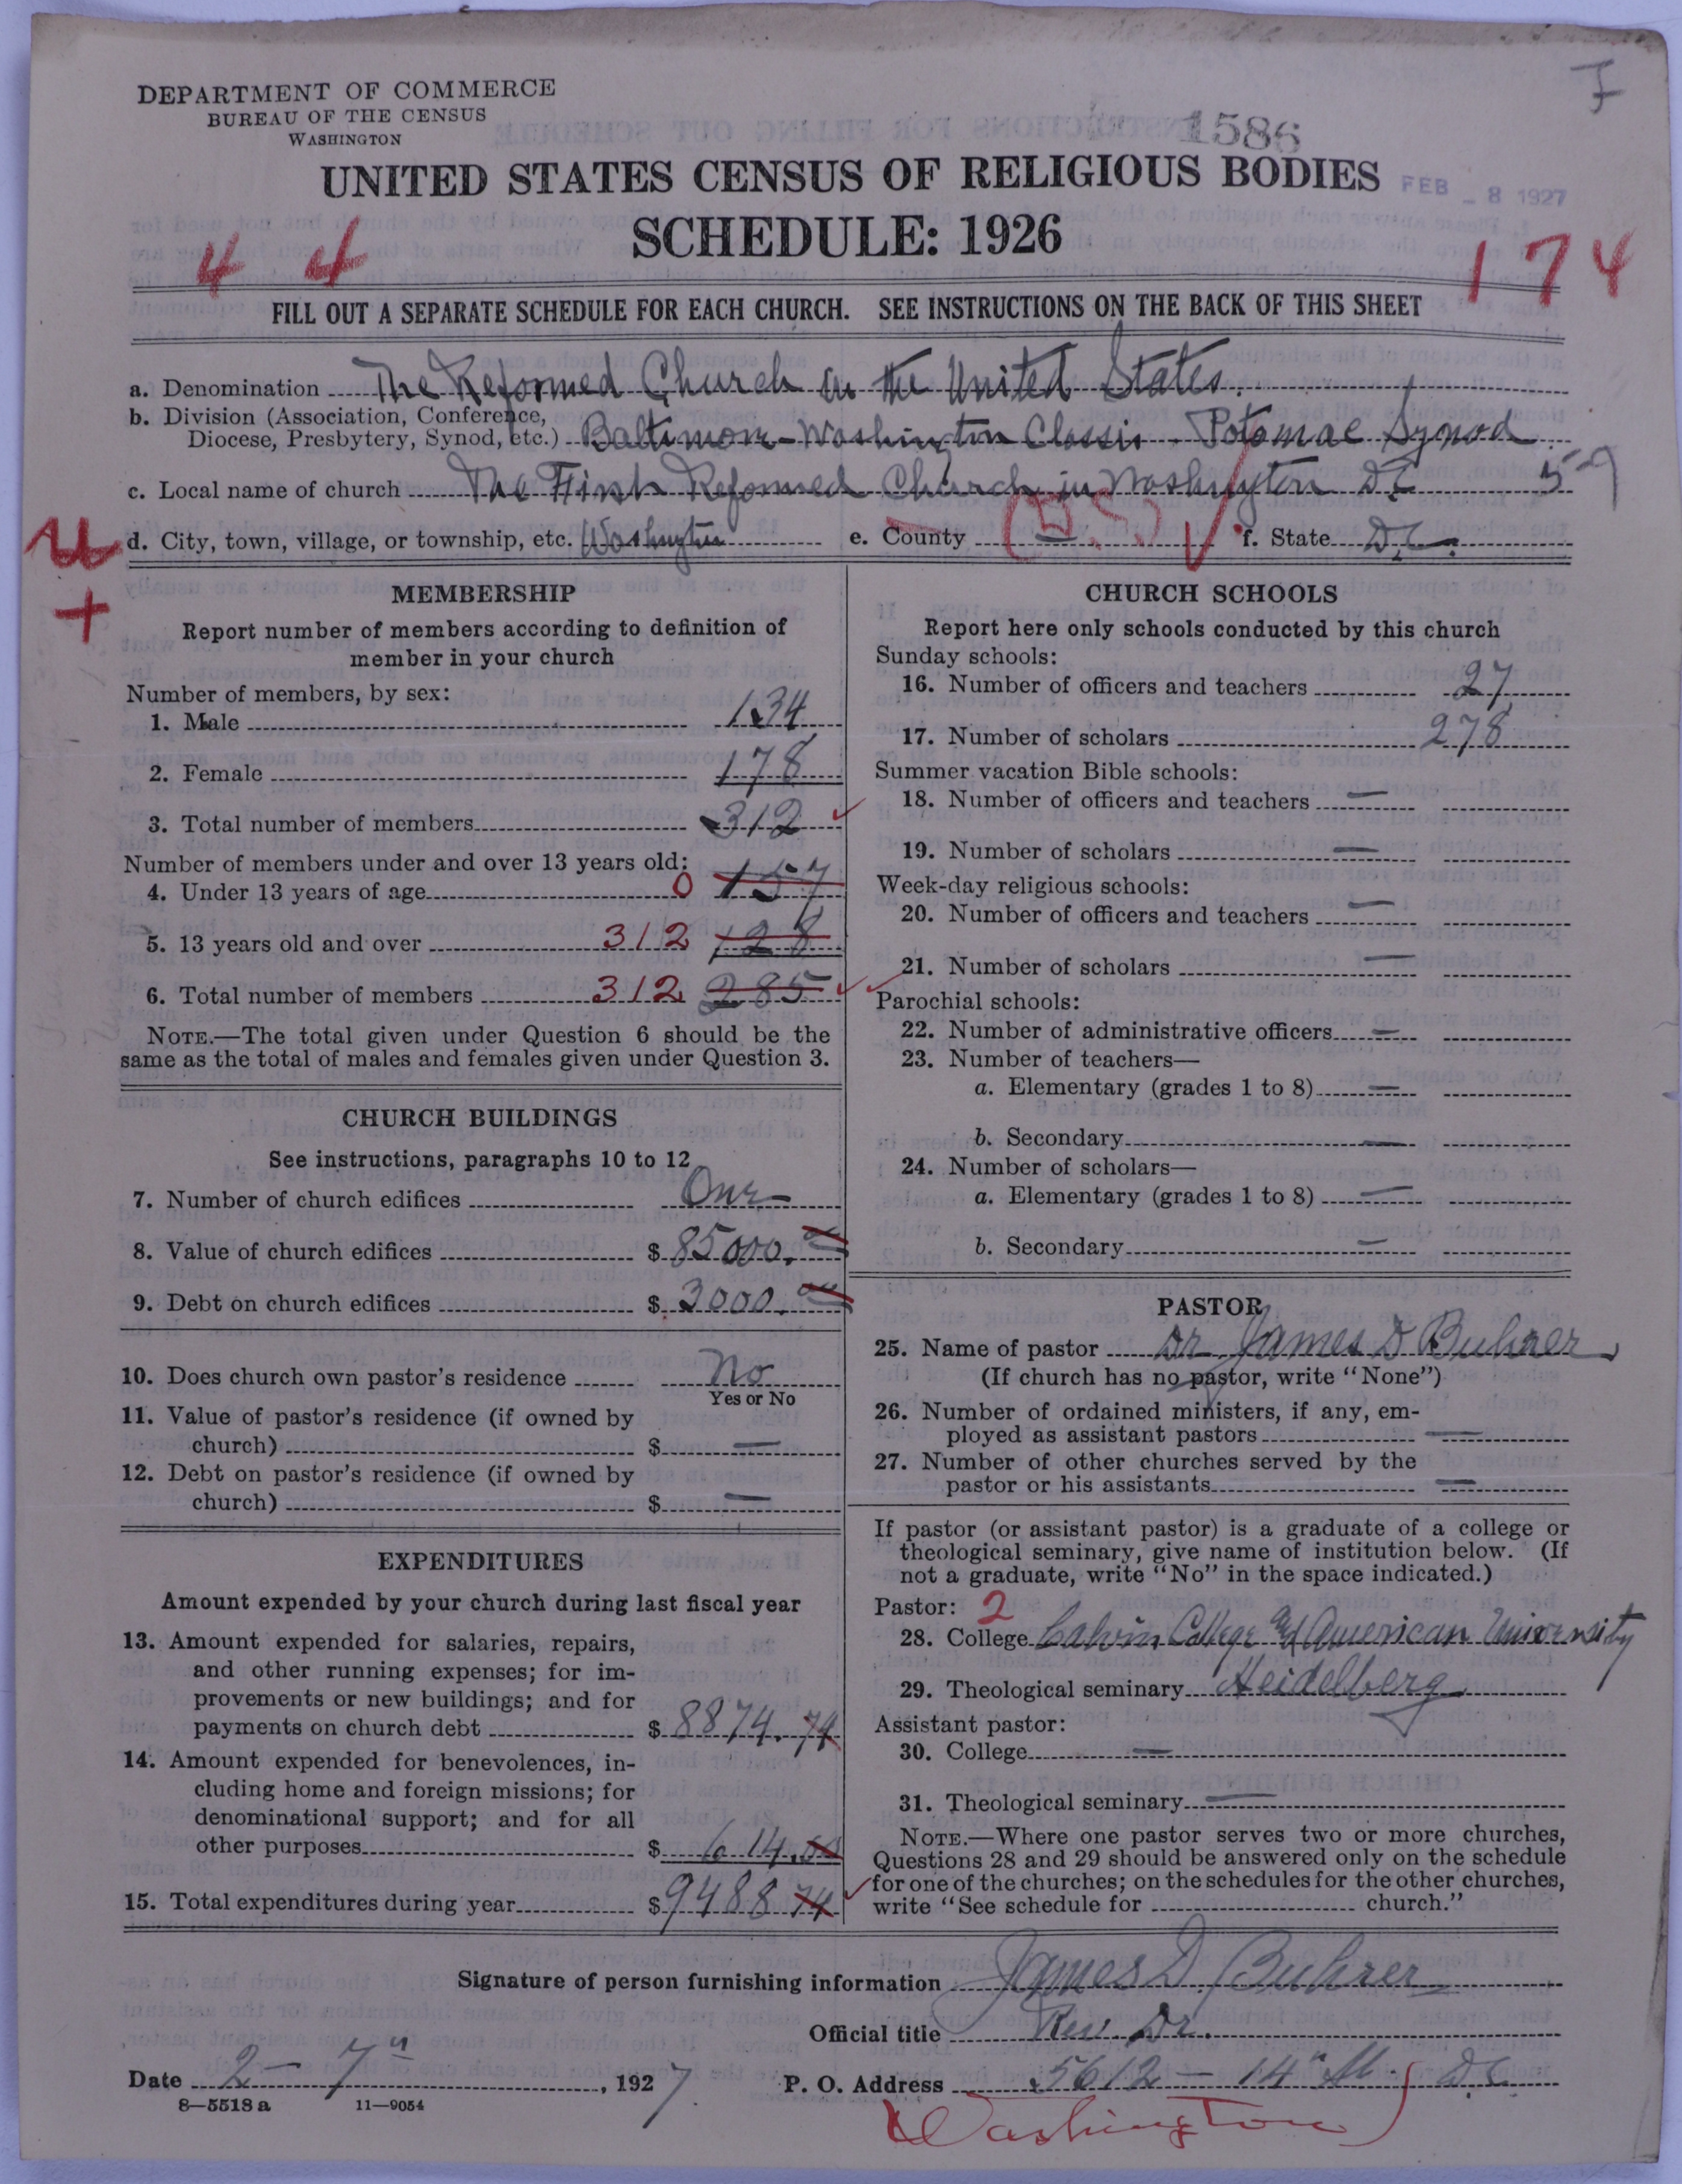 F
DEPARTMENT OF COMMERCE
BUREAU OF THE CENSUS
WASHINGTON
1586
UNITED STATES CENSUS OF RELIGIOUS BODIES
FEB - 8 1927
SCHEDULE: 1926
4 4
174
FILL OUT A SEPARATE SCHEDULE FOR EACH CHURCH. SEE INSTRUCTIONS ON THE BACK OF THIS SHEET
a. Denomination The Reformed Church in the United States.
b. Division (Association, Conference,
Diocese, Presbytery, Synod, etc.) Baltimore-Washington Classis - Potomac Synod
c. Local name of church The First Reformed Church in Washington D.C.
d. City, town, village, or township, etc. Washington e. County f. State D.C.
MEMBERSHIP
Report number of members according to definition of
member in your church
Number of members, by sex:
1. Male 134
2. Female 178
3. Total number of members 312
Number of members under and over 13 years old:
4. Under 13 years of age 0 157
5. 13 years old and over 312 128
6. Total number of members 312 285
NOTE.—The total given under Question 6 should be the
same as the total of males and females given under Question 3.
CHURCH BUILDINGS
See instructions, paragraphs 10 to 12
7. Number of church edifices One
8. Value of church edifices $ 85000.00
9. Debt on church edifices $ 3000.00
10. Does church own pastor's residence No
Yes or No
11. Value of pastor's residence (if owned by
church) $ —
12. Debt on pastor's residence (if owned by
church) $ —
EXPENDITURES
Amount expended by your church during last fiscal year
13. Amount expended for salaries, repairs,
and other running expenses; for im-
provements or new buildings; and for
payments on church debt $ 8874.74
14. Amount expended for benevolences, in-
cluding home and foreign missions; for
denominational support; and for all
other purposes $ 614.00
15. Total expenditures during year $ 9488 74
CHURCH SCHOOLS
Report here only schools conducted by this church
Sunday schools:
16. Number of officers and teachers 27
17. Number of scholars 278
Summer vacation Bible schools:
18. Number of officers and teachers —
19. Number of scholars —
Week-day religious schools:
20. Number of officers and teachers —
21. Number of scholars —
Parochial schools:
22. Number of administrative officers —
23. Number of teachers—
a. Elementary (grades 1 to 8) —
b. Secondary —
24. Number of scholars—
a. Elementary (grades 1 to 8) —
b. Secondary —
PASTOR
25. Name of pastor Dr James D Buhrer
(If church has no pastor, write "None")
26. Number of ordained ministers, if any, em-
ployed as assistant pastors —
27. Number of other churches served by the
pastor or his assistants —
If pastor (or assistant pastor) is a graduate of a college or
theological seminary, give name of institution below. (If
not a graduate, write "No" in the space indicated.)
Pastor: 2
28. College Calvin College and American University
29. Theological seminary Heidelberg
Assistant pastor:
30. College —
31. Theological seminary —
NOTE.—Where one pastor serves two or more churches,
Questions 28 and 29 should be answered only on the schedule
for one of the churches; on the schedules for the other churches,
write "See schedule for church."
Signature of person furnishing information James D Buhrer
Official title Rev. Dr.
Date 2 - 7", 1927 P. O. Address 5612 - 14" St. D.C.
8—5518 a 11—9054
Washington